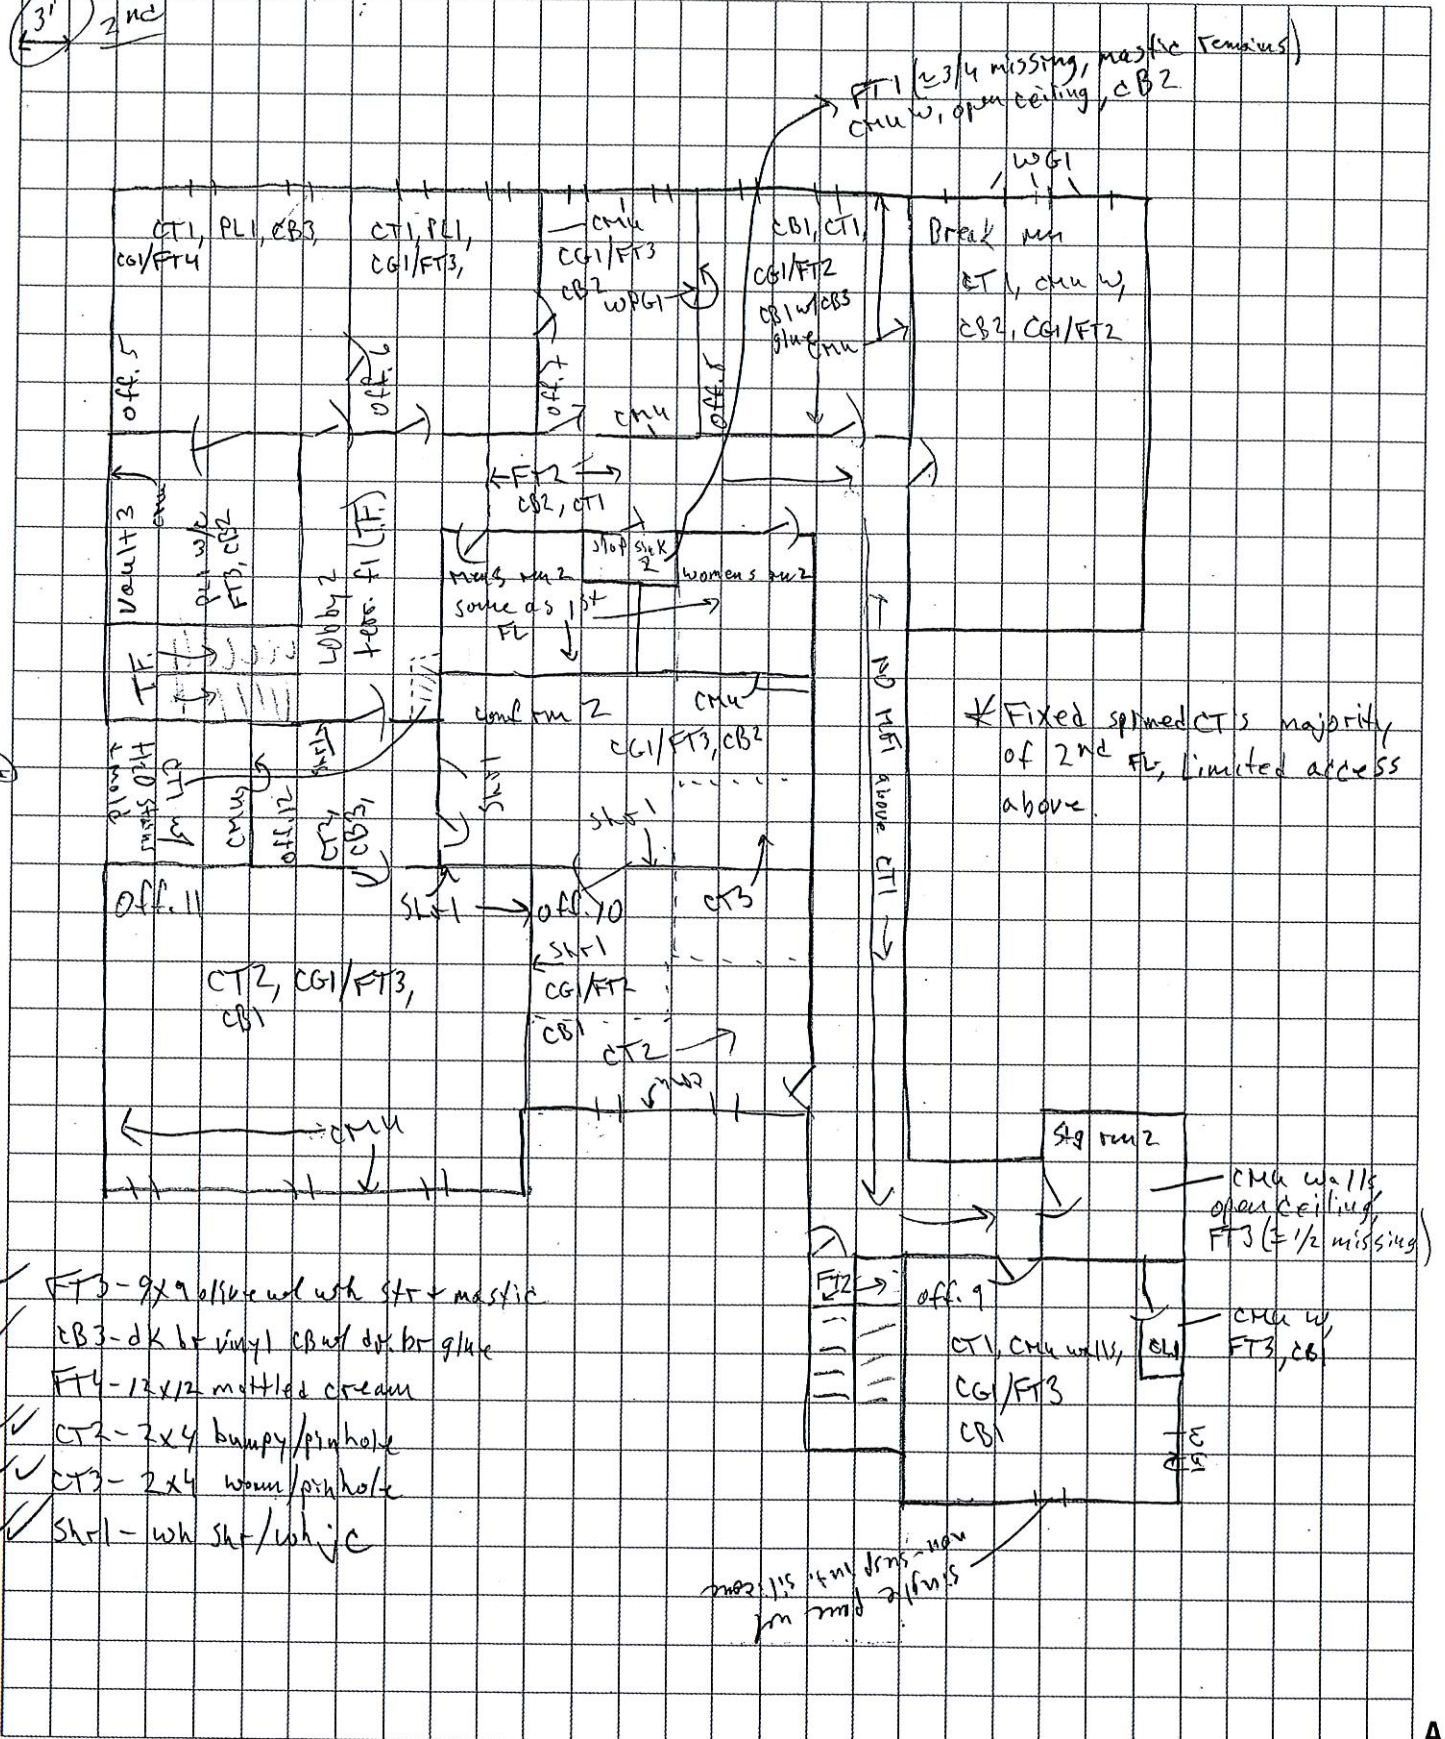 3'
2nd
FT1 (≈3/4 missing, mastic remains)
CMU W, open ceiling, CB2
WG1
CT1, PL1, CB3,
CG1/FT4
CT1, PL1,
CG1/FT3,
CMU
CG1/FT3
CB2
WPG1
CB1, CT1,
CG1/FT2
CB1 w/ CB3
glue
CMU
Break rm
CT1, CMU W,
CB2, CG1/FT2
Off. 5
Off. 6
Off. 7
CMU
FT2
CB2, CT1
Vault 3
CMU
PL1 w/c
FT3, CB2
Lobby 2
terr. fl (T.F.)
slop sink
2
mens rm 2
same as 1st
FL
womens rm2
T.F.
conf rm 2
CMU
CG1/FT3, CB2
NO MF1 above CT1
* Fixed splined CT's majority
of 2nd FL, Limited access
above.
H2O stains
CT1 w/
CMU
Off. 12
CT2,
CB3,
Shr1
Shr1
Shr1
Off. 11
Shr1
Off. 10
CT3
Shr1
CG1/FT2
CB1
CT2
CT2, CG1/FT3,
CB1
CMU
CMU
Stg rm 2
CMU walls,
open ceiling,
FT3 (≈ 1/2 missing)
FT2
Off. 9
CT1, CMU walls,
CG1/FT3
CB1
CL1
CMU W,
FT3, CB1
FT3 - 9x9 olive w/ wh str + mastic
CB3 - dk br vinyl CB w/ dk. br glue
FT4 - 12x12 mottled cream
CT2 - 2x4 bumpy/pinhole
CT3 - 2x4 worm/pinhole
Shr1 - wh shr/wh jc
single pane w/
non-susp int. silicone
A